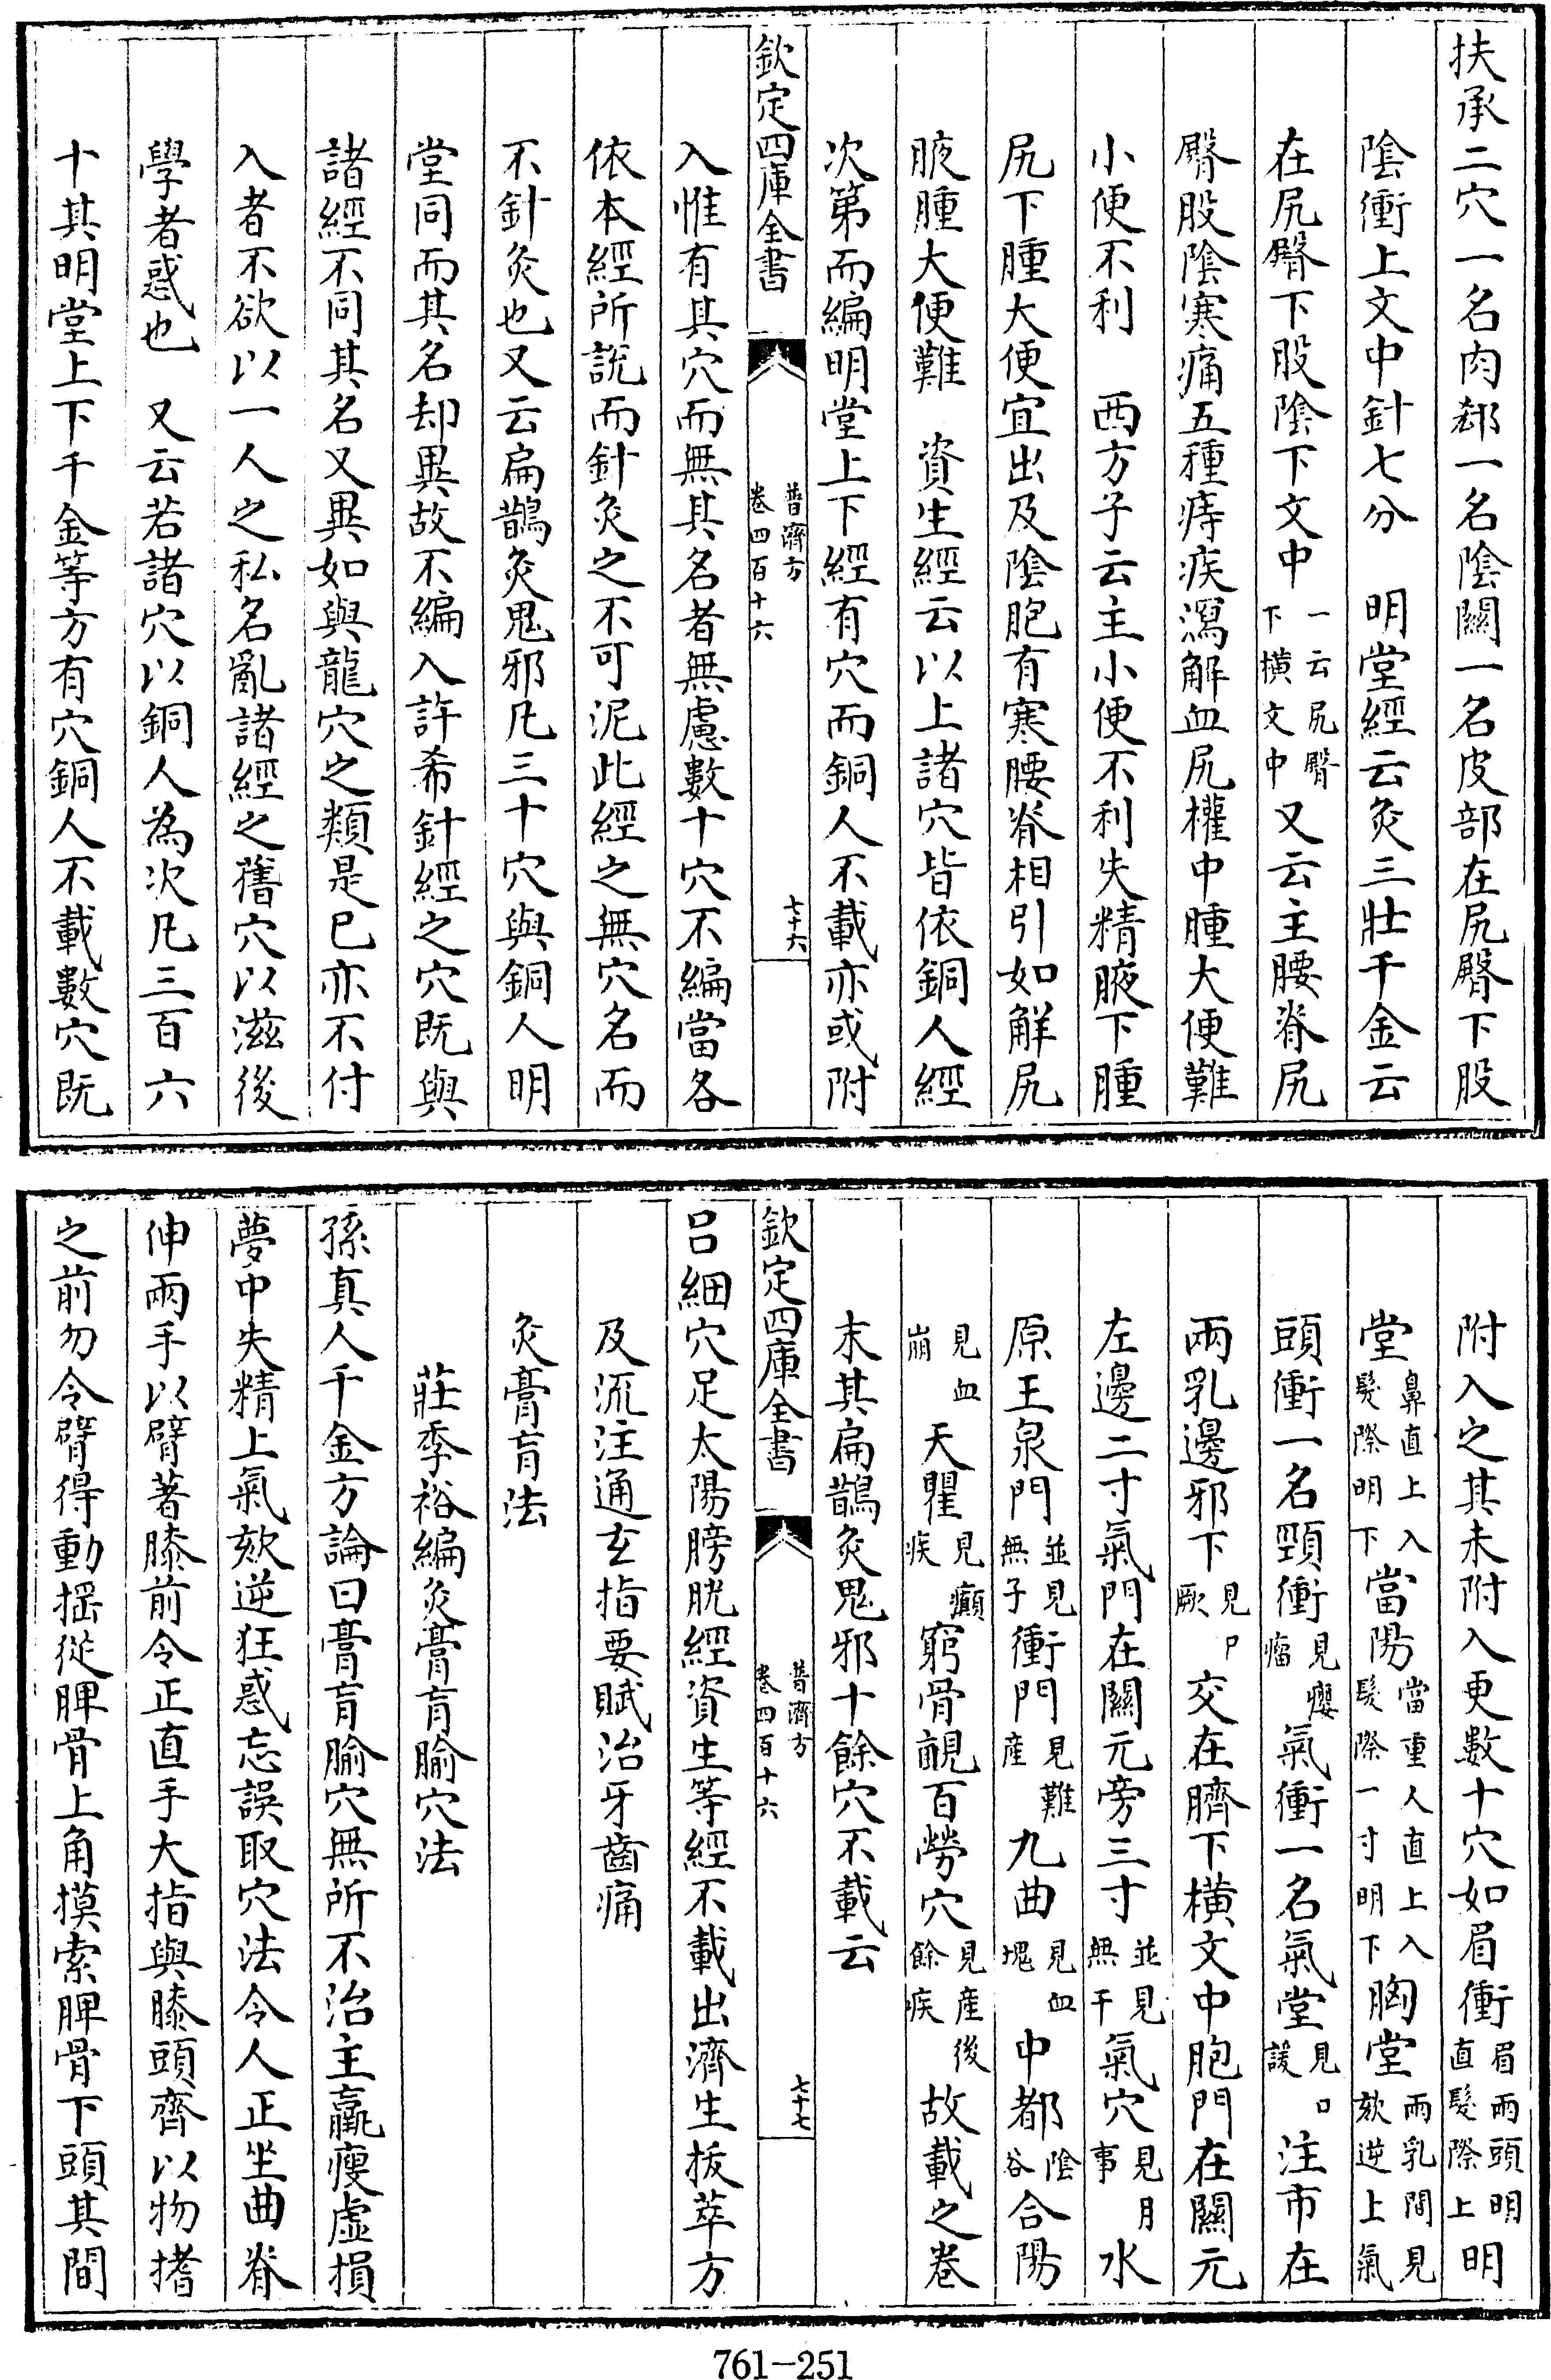 扶承二穴一名肉郄一名陰關一名皮部在尻臀下股
陰衝上文中針七分　明堂經云灸三壯千金云
在尻臀下股陰下文中一云尻臀下橫文中又云主腰脊尻
臀股陰寒痛五種痔疾瀉解血尻𣙜中腫大便難
小便不利　西方子云主小便不利失精腋下腫
尻下腫大便宜出及陰胞有寒腰脊相引如解尻
腋腫大便難　資生經云以上諸穴皆依銅人經
次第而編明堂上下經有穴而銅人不載亦或附
欽定四庫全書
普濟方
卷四百十六
七十六
入惟有其穴而無其名者無慮數十穴不編當各
依本經所說而針灸之不可泥此經之無穴名而
不針灸也又云扁鵲灸鬼邪凡三十穴與銅人明
堂同而其名却異故不編入許希針經之穴既與
諸經不同其名又異如與龍穴之類是已亦不付
入者不欲以一人之私名亂諸經之舊穴以滋後
學者惑也　又云若諸穴以銅人為次凡三百六
十其明堂上下千金等方有穴銅人不載數穴既
附入之其未附入更數十穴如眉衝眉兩頭明直髮際上明
堂鼻直上入髮際明下當陽當重人直上入髮際一寸明下胸堂兩乳間見欬逆上氣
頭衝一名頸衝見癭瘤氣衝一名氣堂見口諼注市在
兩乳邊邪下見尸厥交在臍下橫文中胞門在關元
左邊二寸氣門在關元旁三寸並見無干氣穴見月事水
原王泉門並見無子衝門見難産九曲見血塊中都陰谷合陽
見血崩天瞿見癲疾窮骨覶百勞穴見産後餘疾故載之卷
末其扁鵲灸鬼邪十餘穴不載云
欽定四庫全書
普濟方
卷四百十六
七十七
吕細穴足太陽膀胱經資生等經不載出濟生拔萃方
及流注通玄指要賦治牙齒痛
灸膏肓法
莊季裕編灸膏肓腧穴法
孫真人千金方論曰膏肓腧穴無所不治主羸瘦虛損
夢中失精上氣欬逆狂惑忘誤取穴法令人正坐曲脊
伸兩手以臂著膝前令正直手大指與膝頭齊以物搘
之前勿令臂得動摇從胛骨上角摸索胛骨下頭其間
761-251